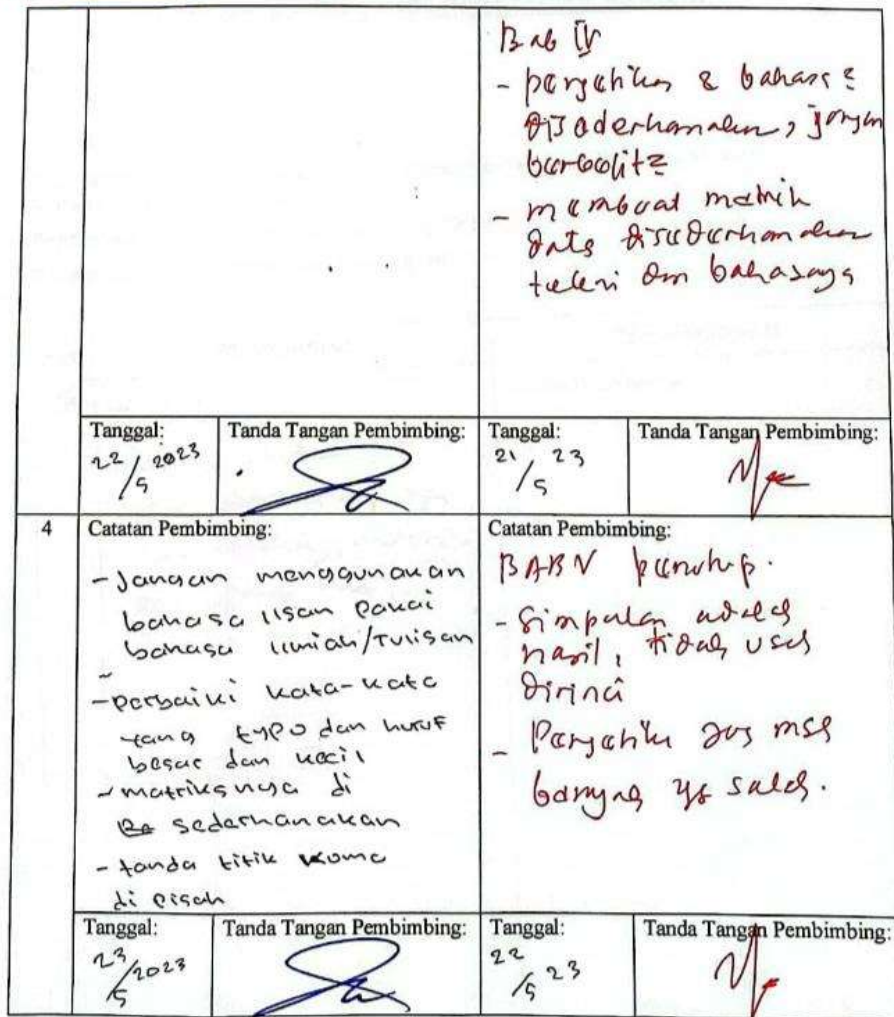 Bab IV
- pengetikan & bahasa 2
disederhanakan, jangan
berbelit2
- membuat matrik
data disederhanakan
dan bahasanya
Tanggal:
22/5 2023
Tanda Tangan Pembimbing:
Tanggal:
21/5 23
Tanda Tangan Pembimbing:
4
Catatan Pembimbing:
- Jangan menggunakan
bahasa lisan Pakai
bahasa ilmiah/Tulisan
- Perbaiki kata-kata
yang typo dan huruf
besar dan kecil
- matriksnya di
sederhanakan
- tanda titik koma
di pisah
Catatan Pembimbing:
BAB V penutup.
- Simpulan adalah
hasil, tidak usah
dirinci
- Pengetikan msh
banyak yg salah.
Tanggal:
23/5 2023
Tanda Tangan Pembimbing:
Tanggal:
22/5 23
Tanda Tangan Pembimbing: